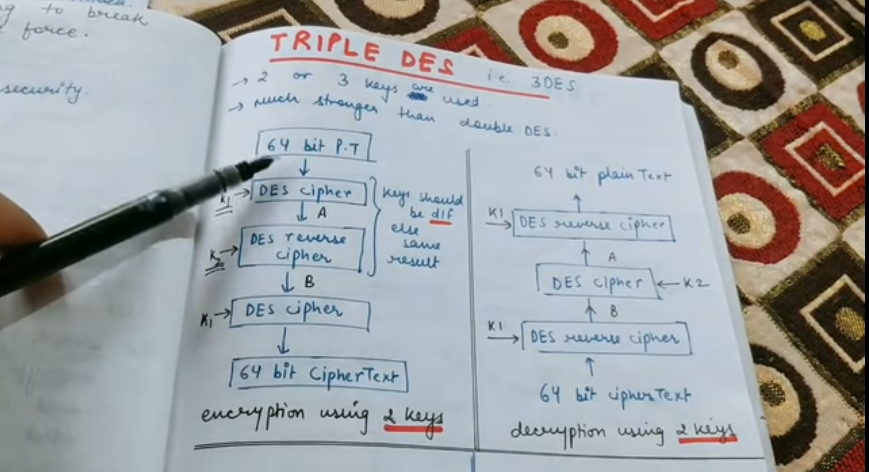 to break
force.
security.
TRIPLE DES i.e. 3DES
→ 2 or 3 keys are used
→ Much stronger than double DES.
64 bit P.T
K1 → DES cipher
A
K2 → DES reverse
cipher
B
K1 → DES cipher
64 bit CipherText
encryption using 2 keys
Keys should
be dif
else
same
result
64 bit plainText
K1 → DES reverse cipher
A
DES cipher ← K2
B
K1 → DES reverse cipher
64 bit cipherText
decryption using 2 keys